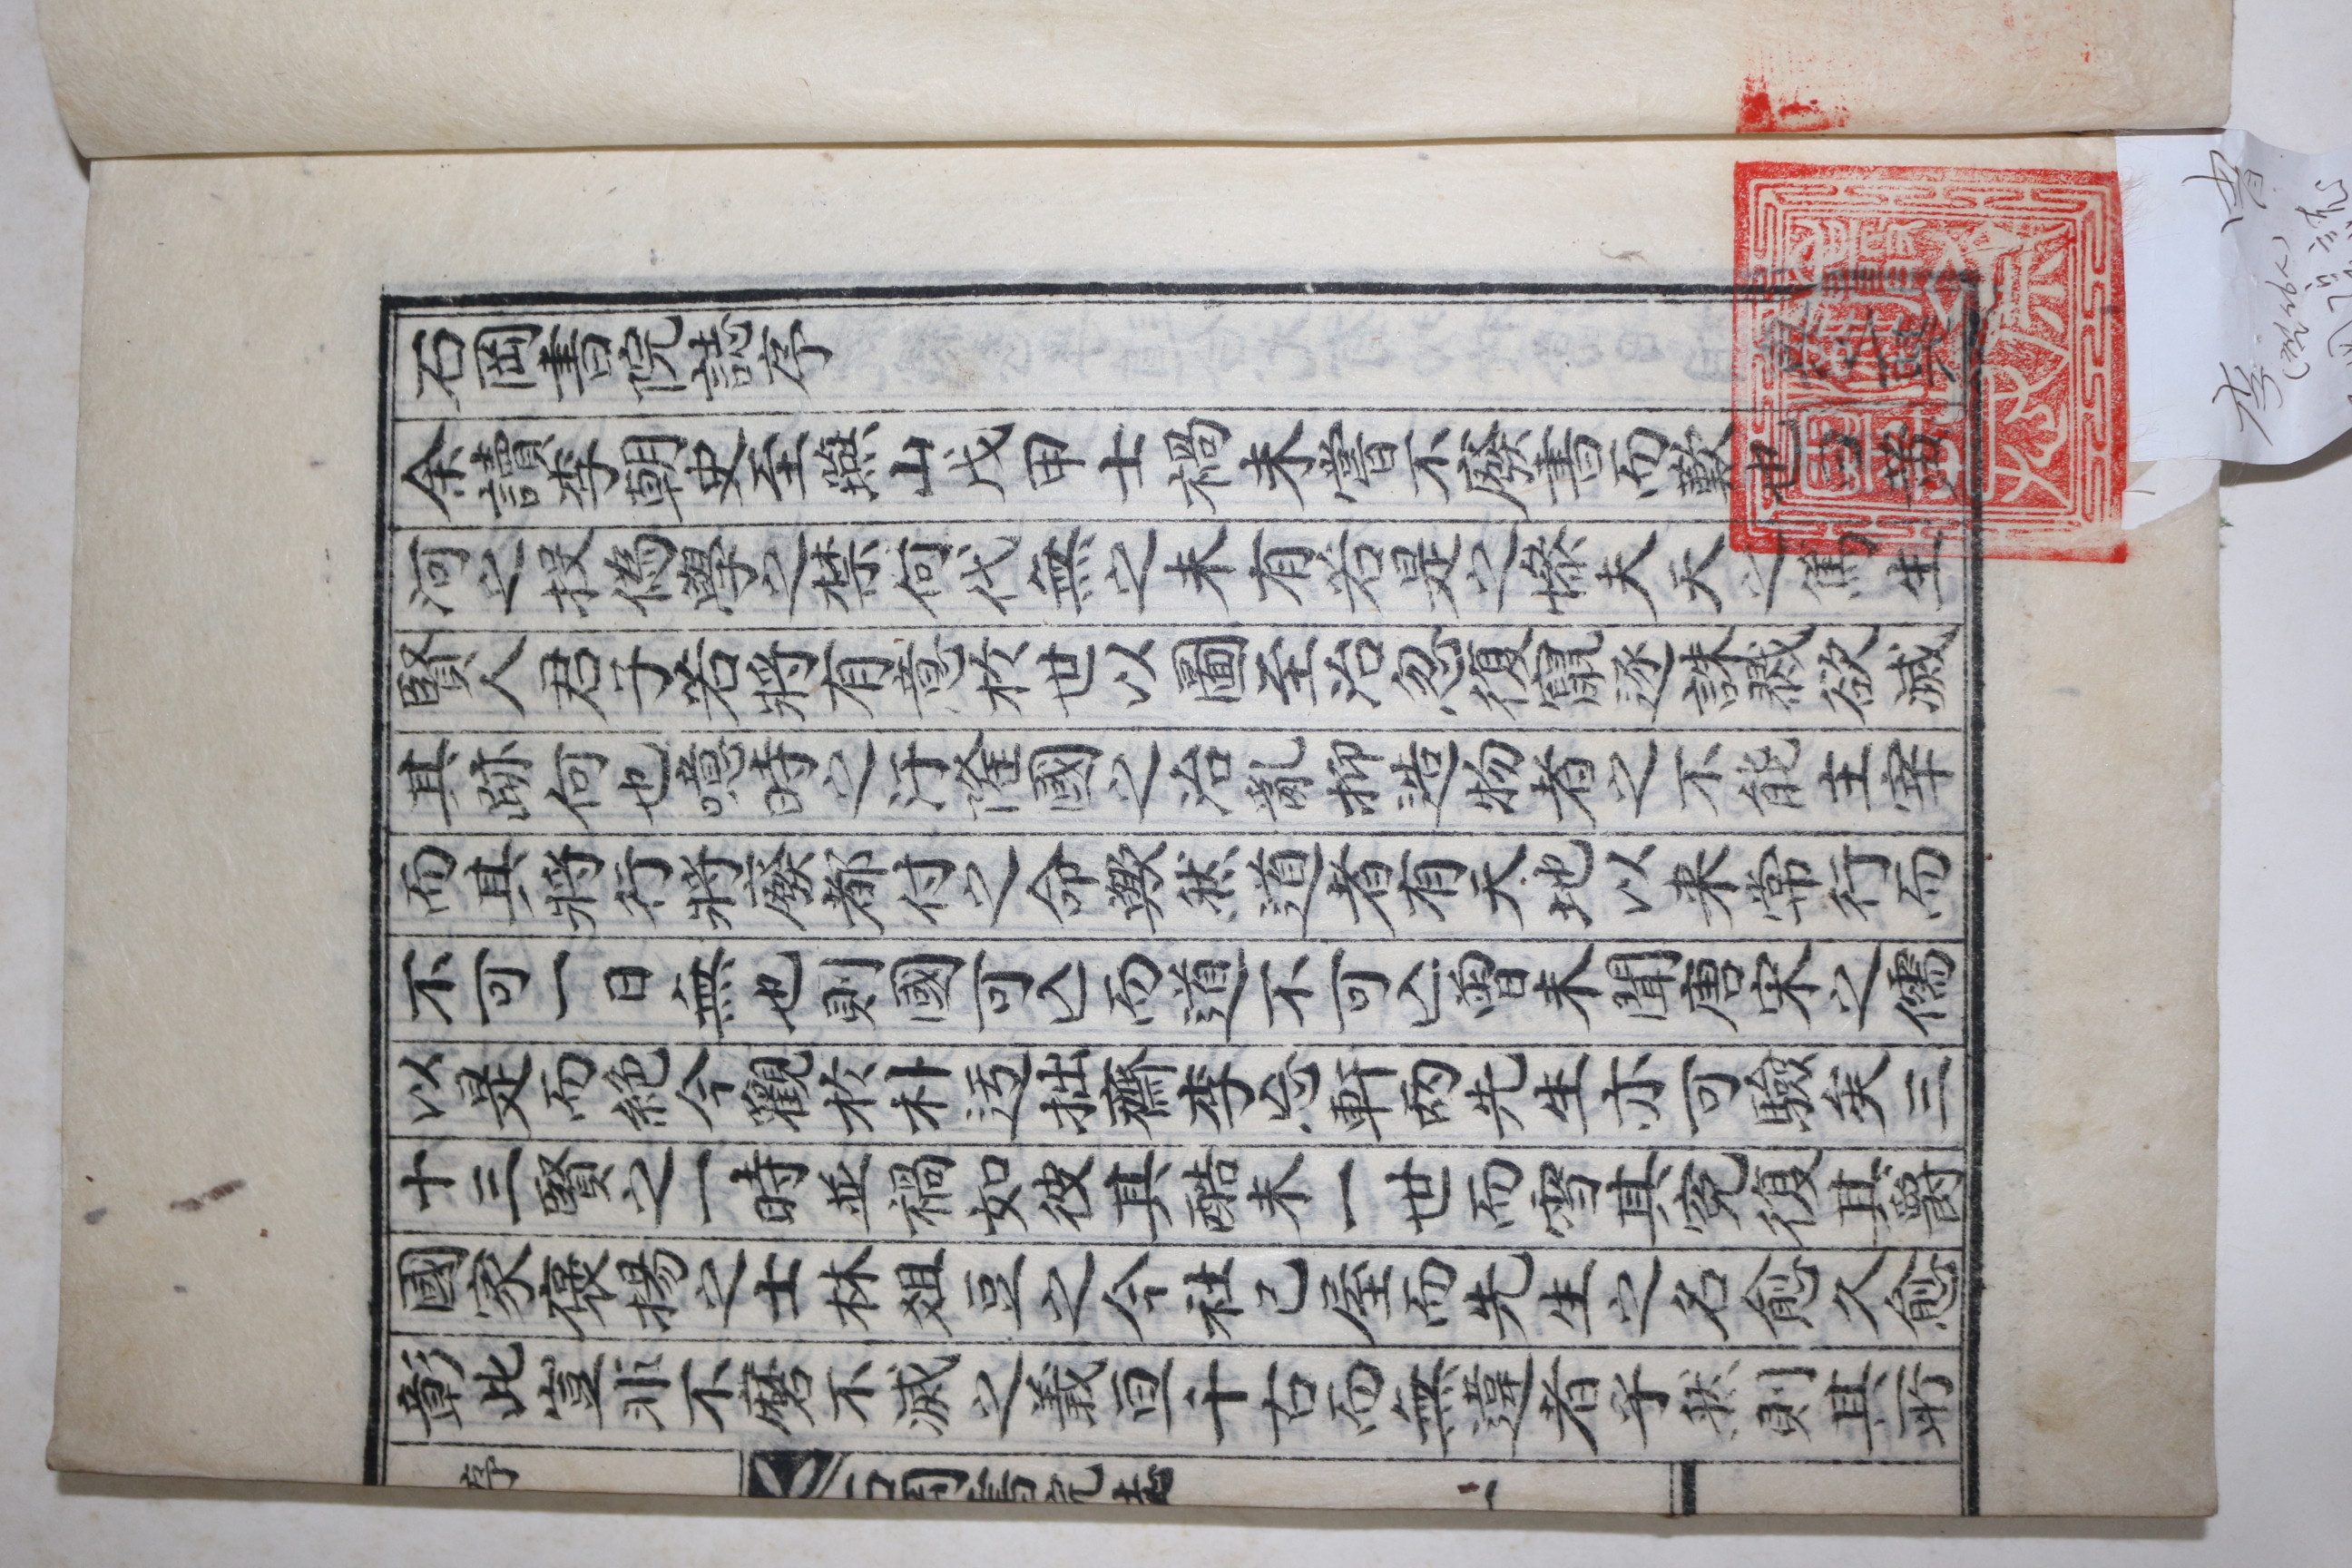 石岡書院誌序
余讀李朝史至燕山戊甲士禍未嘗不廢書而歎也
河之投僞學之禁何代無之未有若是之慘夫天之篤生
賢人君子若將有意於世以圖至治忽復竄逐誅戮欲滅
其跡何也噫時之汙隆國之治亂抑造物者之不能主宰
而其將行將廢都付之命歟然道者有天地以来常行而
不可一日無也則國可亾而道不可亾曾未聞唐宋之儒
以是而絶今觀於朴迃拙齋李忘軒兩先生亦可驗矣三
十三賢之一時並禍如彼其酷未一世而雪其寃復其爵
國家褒揚之士林俎豆之今社已屋而先生之名愈久愈
彰此豈非不磨不滅之義亘千古而無違者乎然則其所
序
石岡書院志
一
李 胄